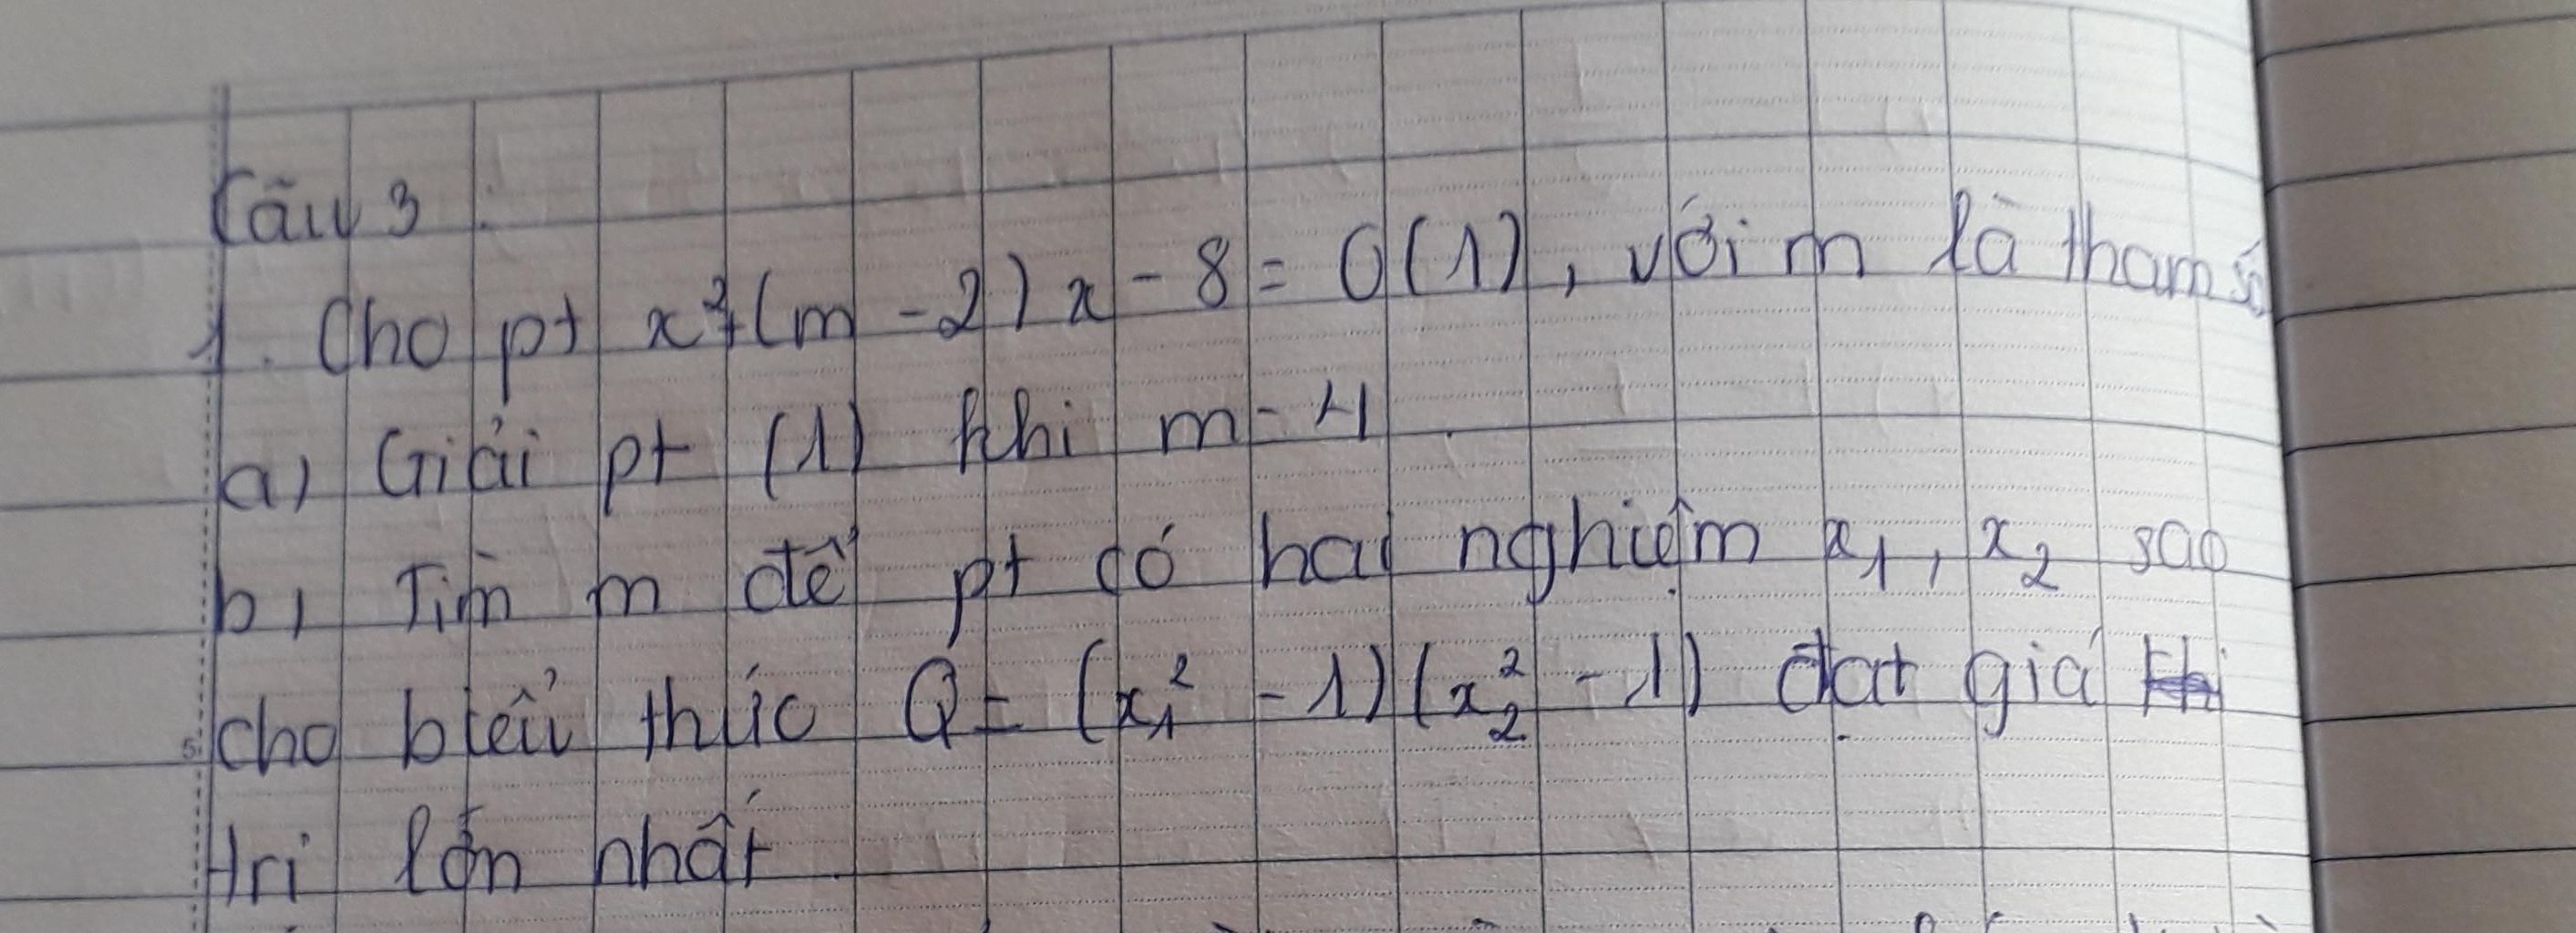 Câu 3 :
1. Cho pt x²+(m - 2) x - 8 = 0 (1), với m là tham số
a) Giải pt (1) khi m = 4.
b) Tìm m để pt có hai nghiệm x₁, x₂ sao
cho biểu thức Q = (x₁² - 1)(x₂² - 1) đạt giá
trị lớn nhất.